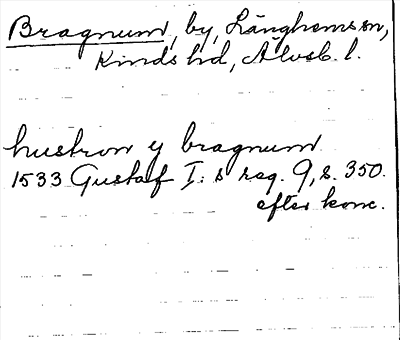 Bragnum, by, Länghems sn,
Kinds hd, Älvsb. l.
hustron y bragnum
1533 Gustaf I:s reg. 9, s. 350.
efter konc.